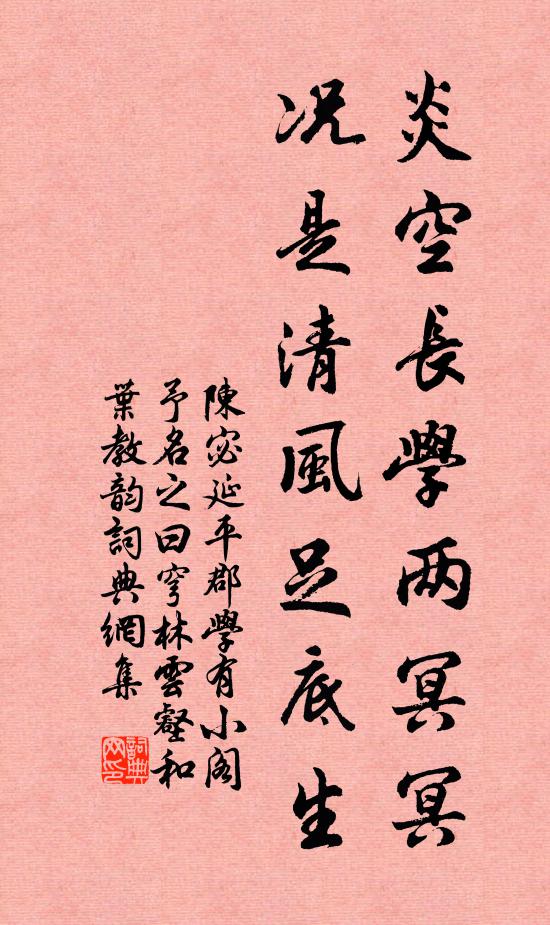 炎空長學两冥冥
况是清風足底生
陳宓延平郡學有小閣
予名之曰穹林雲壑和
葉教韵詞典網集
詞典网印